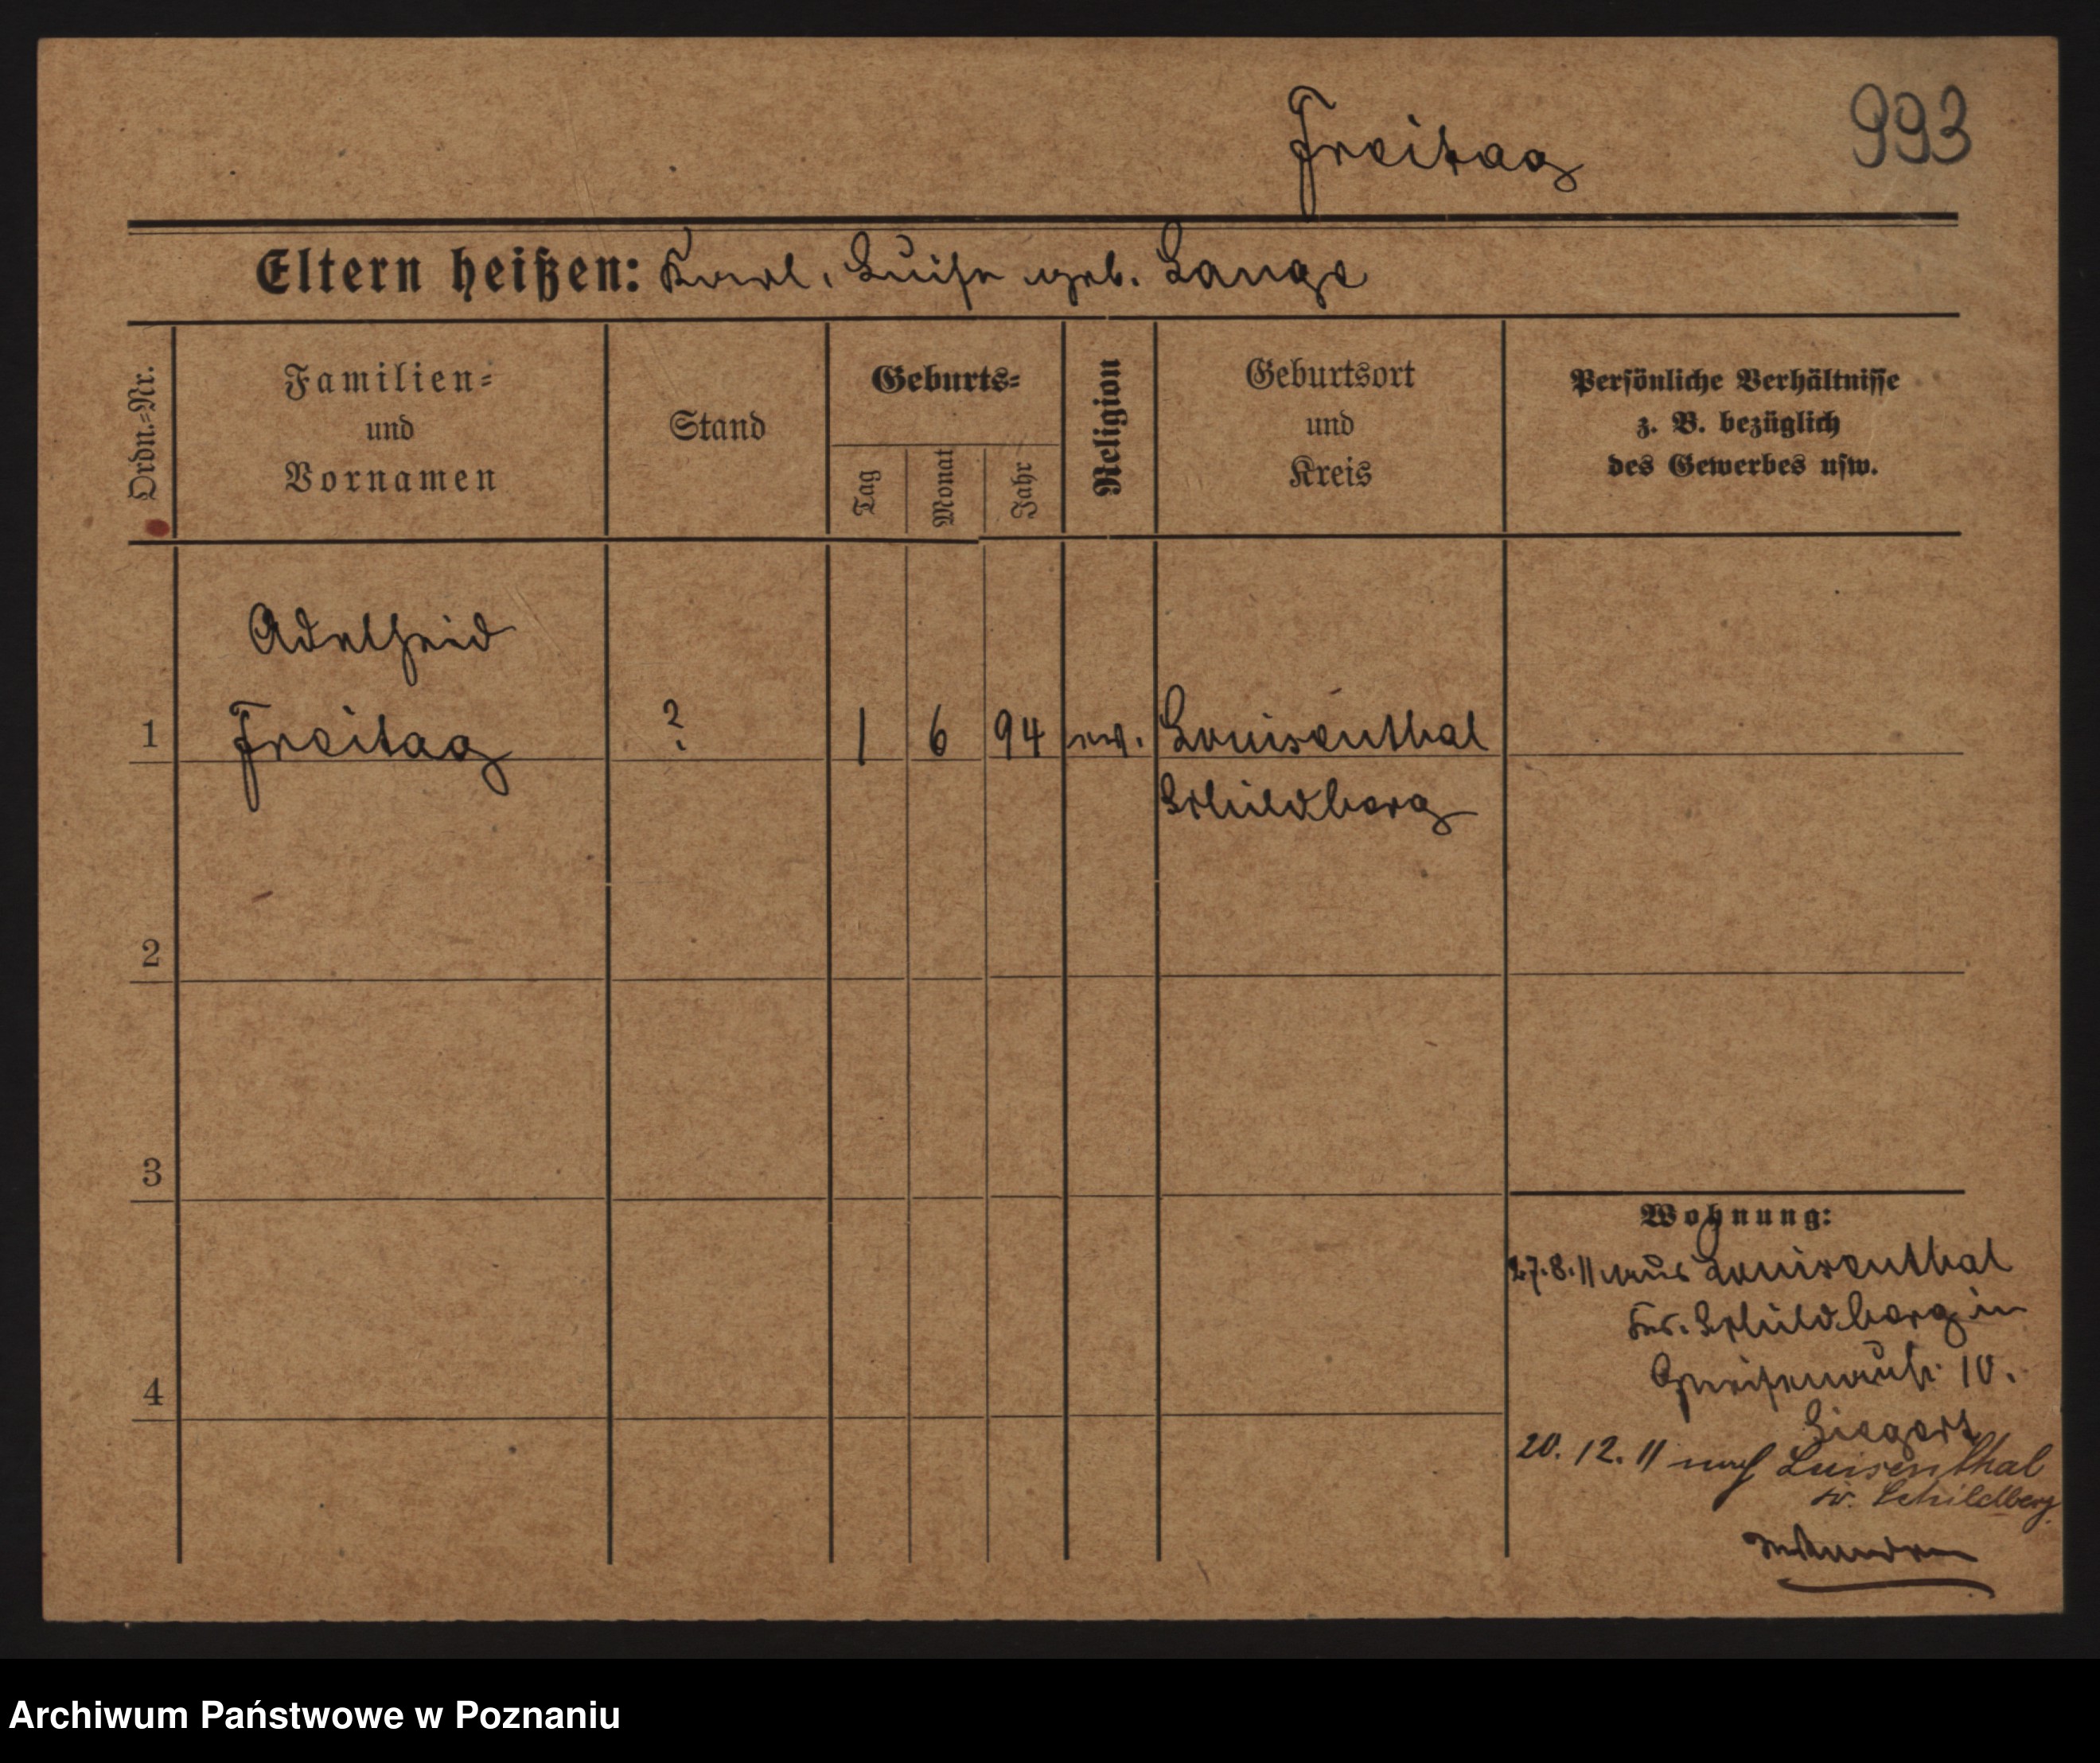 Freitag 993
Eltern heißen: Karl, Luise geb. Lange
Ordn.-Nr.
Familien-
und
Vornamen
Stand
Geburts-
Tag
Monat
Jahr
Religion
Geburtsort
und
Kreis
Persönliche Verhältnisse
z. B. bezüglich
des Gewerbes usw.
Adelheid
1 Freitag ? 1 6 94 ev. Louisenthal
Schildberg
2
3
4
Wohnung:
27.8.11 aus Louisenthal
Krs. Schildberg in
Gneisenaustr. 10.
Siegert
20. 12. 11 nach Luisenthal
Schildberg
Archiwum Państwowe w Poznaniu